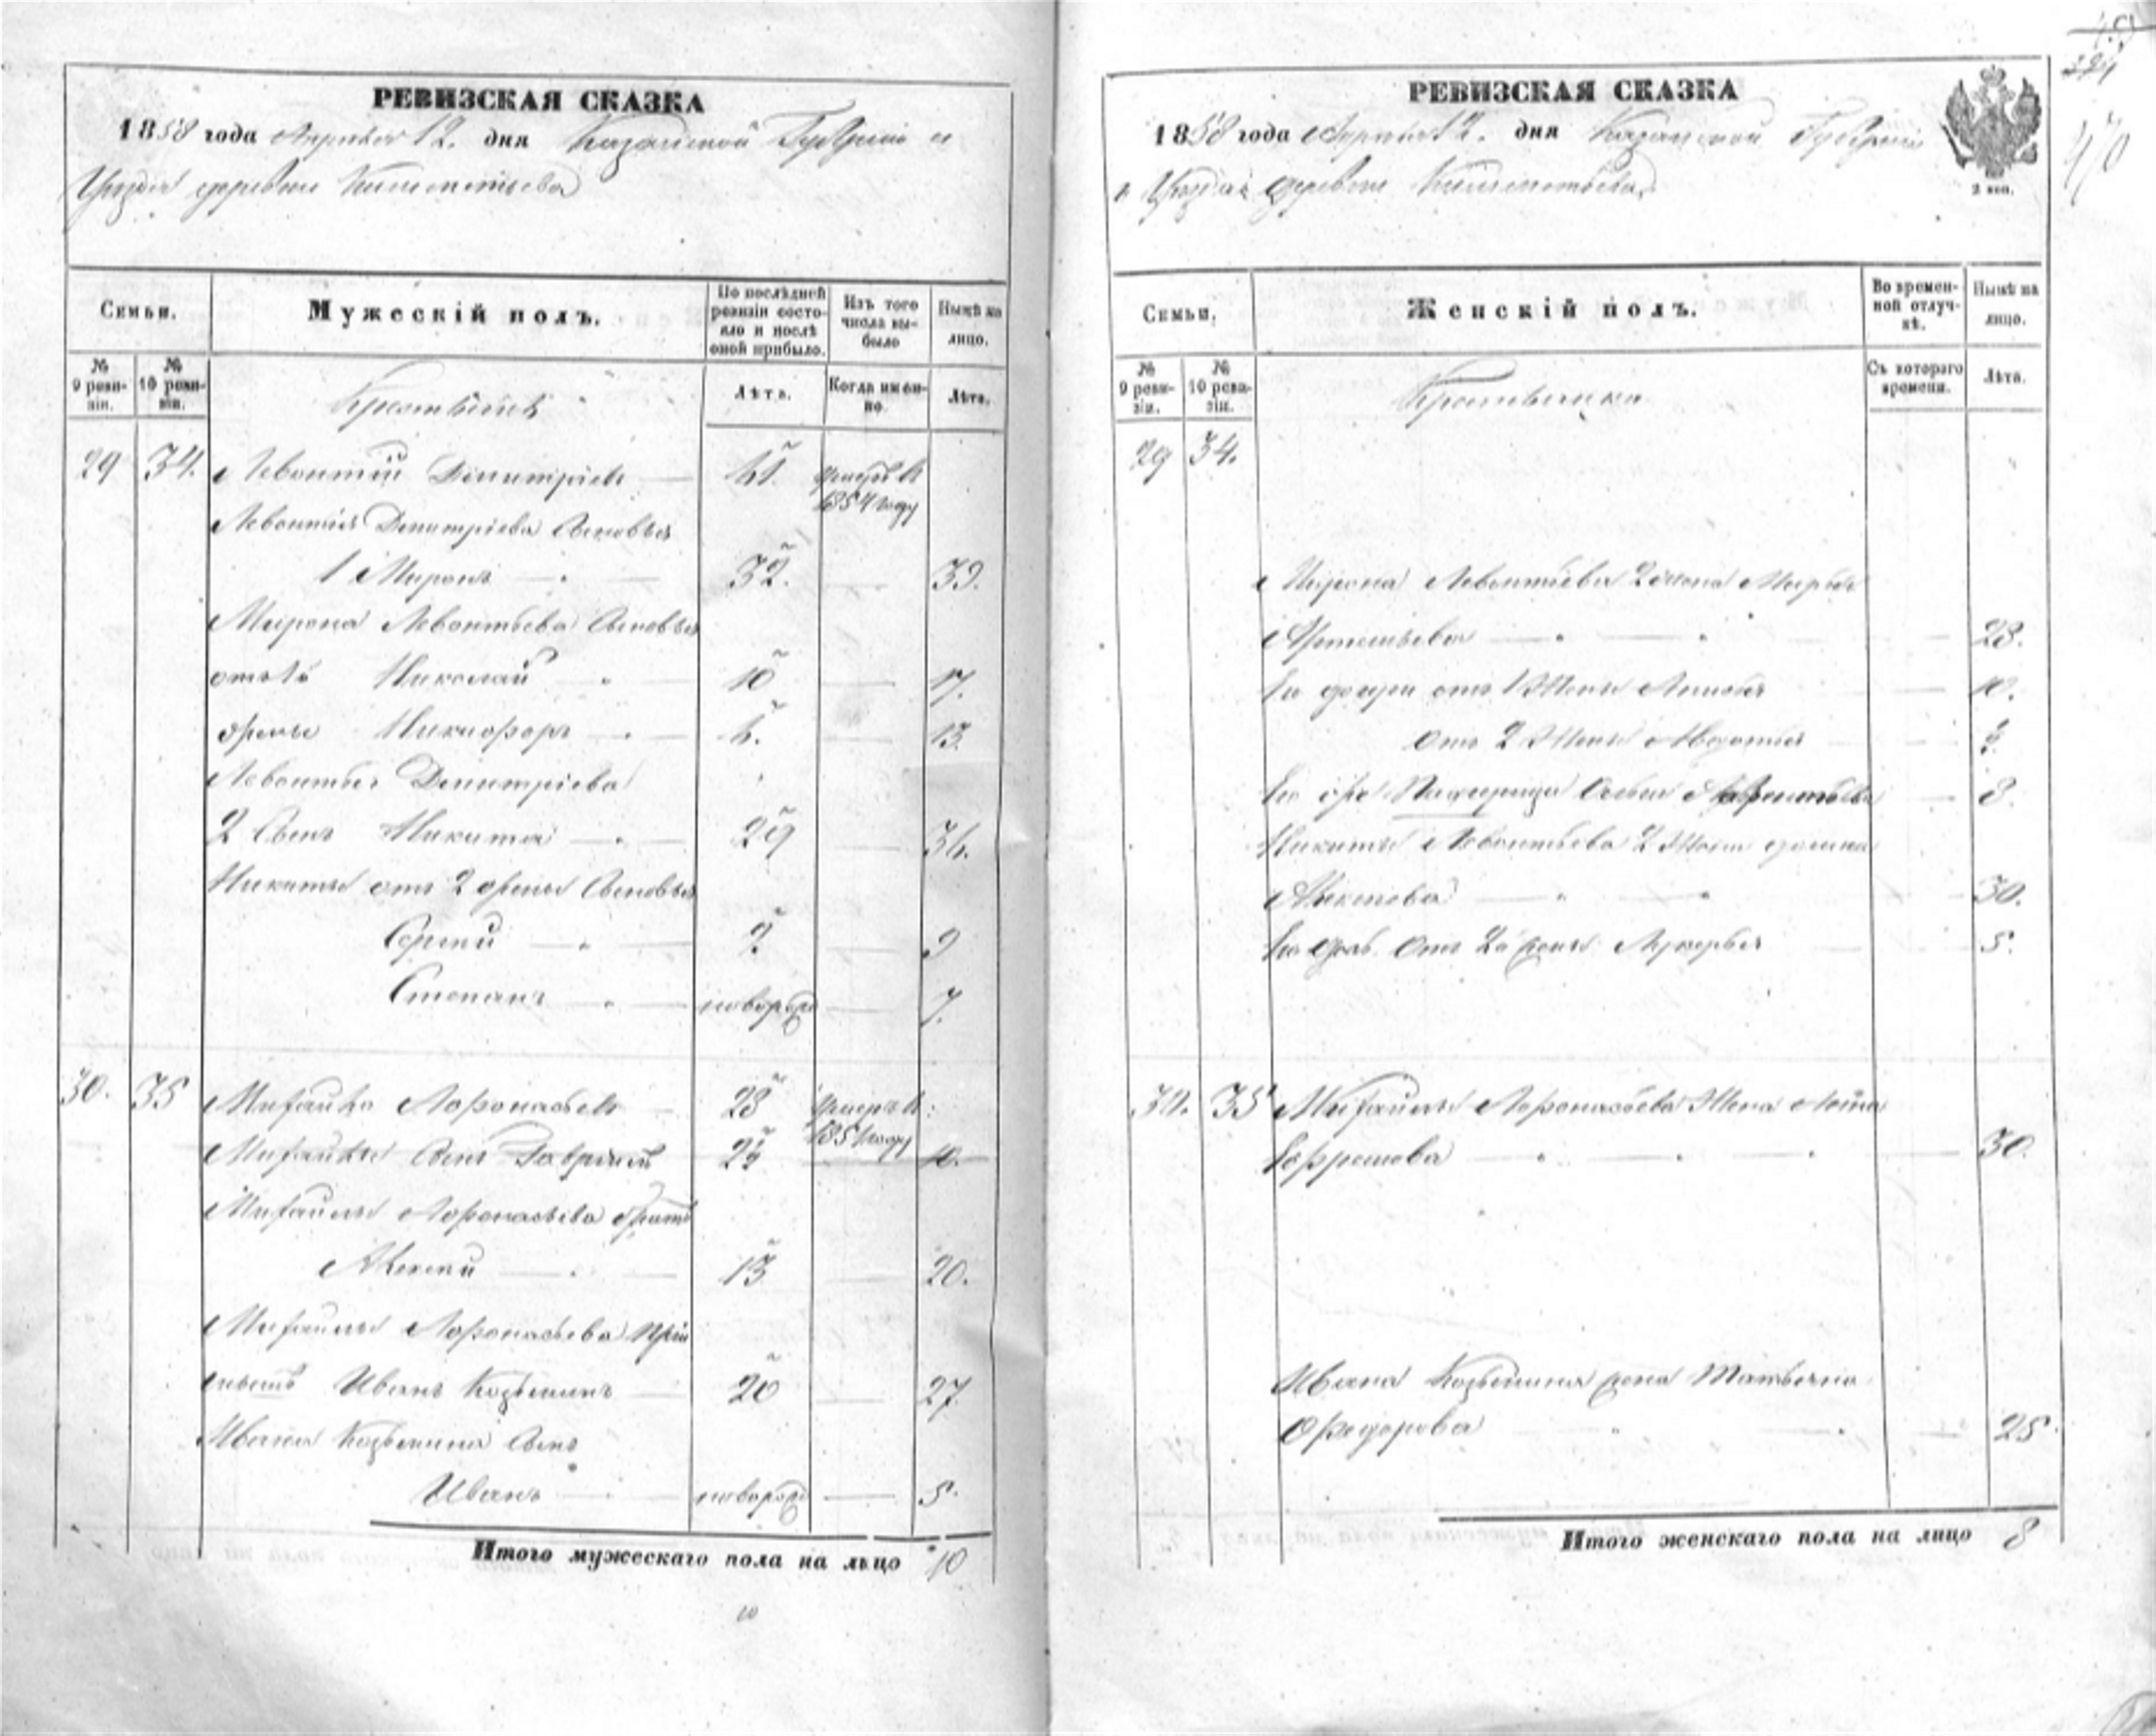 РЕВИЗСКАЯ СКАЗКА
1858 года Апреля 12. дня Казанской Губернiи и
Уезда деревни
Семьи.
Мужескiй полъ.
По послѣдней ревизiи состояло и послѣ оной прибыло.
Изъ того числа выбыло
Нынѣ на лицо.
№ 9 ревизiи.
№ 10 ревизiи.
Лѣта.
Когда именно.
Лѣта.
29 34. Левонтiй Димитрiевъ 1854 году
Левонтiя Димитрiева Сыновья
1 Миронъ 32. 39.
Мирона Левонтьева Сыновья
Николай 10 17.
Никифоръ 13.
Левонтья Димитрiева
2 Сынъ Никита 29
Никиты отъ 2 жены Сыновья
Сергiй 2. 9
Степанъ новорожд 7.
30. 35 Михайло Афонасьевъ 28 1851 году
Михайлы Сынъ Гаврiилъ
Михайлы Афонасьева братъ
Алексiй 13 20.
Михайлы Афонасьева Прiи
Иванъ Козьминъ 20 27.
Ивана Козьмина Сынъ
Иванъ новорожд 5.
Итого мужескаго пола на лицо 10
РЕВИЗСКАЯ СКАЗКА
1858 года Апреля 12. дня Казанской Губернiи
и Уезда деревни
2 коп.
470
Семьи.
Женскiй полъ.
Во временной отлучкѣ.
Нынѣ на лицо.
№ 9 ревизiи.
№ 10 ревизiи.
Съ котораго времени.
Лѣта.
29 34.
Мирона Левонтьева 2 жена Марья
Артемьева 28.
Ево дочери отъ 1 Жены 10.
отъ 2 Жены Авдотья
Ево Падчерица 8.
Никиты Левонтьева 2 Жена
30.
Ево дочь отъ 2й жены Лукерья 5.
30. 35 Михайлы Афонасьева Жена Анна
Ефремова 30.
Ивана Козьмина жена Матвена
Федорова 25
Итого женскаго пола на лицо 8